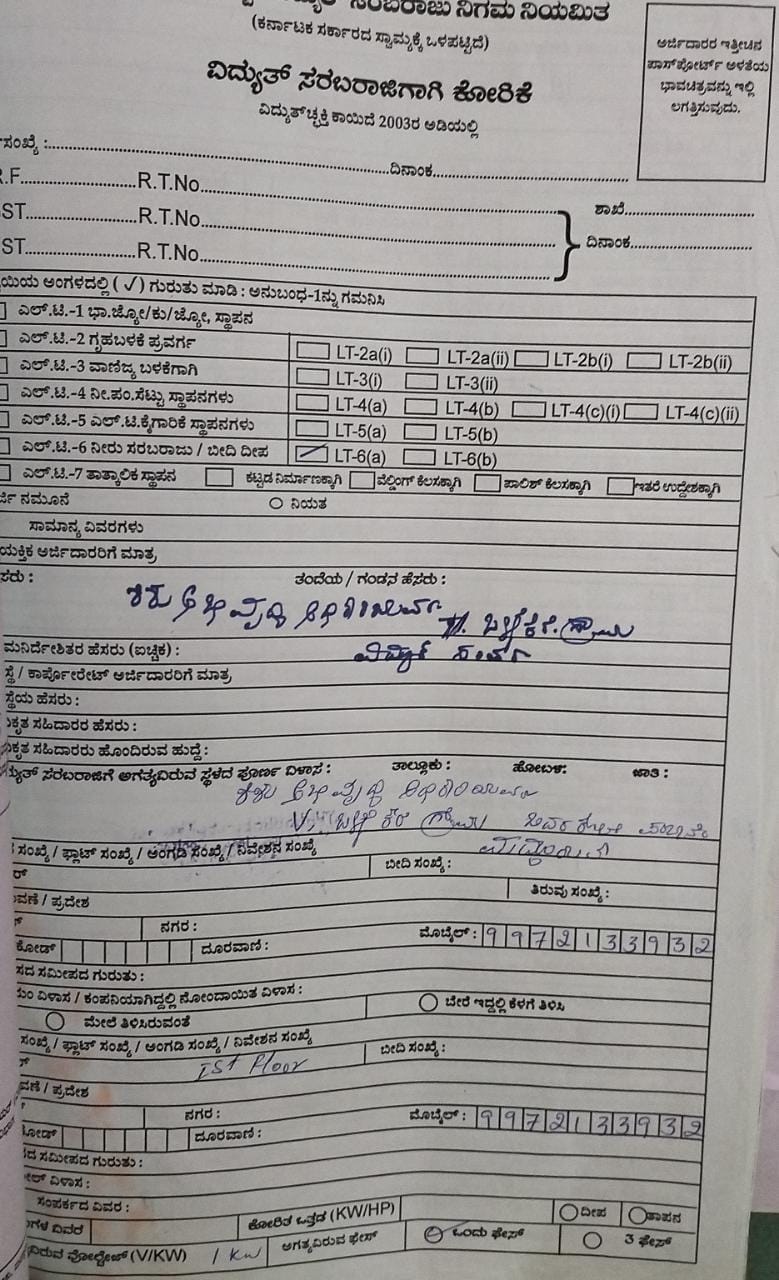 ಸರಬರಾಜು ನಿಗಮ ನಿಯಮಿತ
(ಕರ್ನಾಟಕ ಸರ್ಕಾರದ ಸ್ವಾಮ್ಯಕ್ಕೆ ಒಳಪಟ್ಟಿದೆ)
ಅರ್ಜಿದಾರರ ಇತ್ತೀಚಿನ
ಪಾಸ್‌ಪೋರ್ಟ್ ಅಳತೆಯ
ಭಾವಚಿತ್ರವನ್ನು ಇಲ್ಲಿ
ಲಗತ್ತಿಸುವುದು.
ವಿದ್ಯುತ್ ಸರಬರಾಜಿಗಾಗಿ ಕೋರಿಕೆ
ವಿದ್ಯುತ್‌ಚ್ಛಕ್ತಿ ಕಾಯಿದೆ 2003ರ ಅಡಿಯಲ್ಲಿ
ಸಂಖ್ಯೆ :........ದಿನಾಂಕ........
R.F........R.T.No........
ST........R.T.No........ ಶಾಖೆ........
ST........R.T.No........ ದಿನಾಂಕ........
ಅಂಗಳದಲ್ಲಿ (✓) ಗುರುತು ಮಾಡಿ : ಅನುಬಂಧ-1ನ್ನು ಗಮನಿಸಿ
ಎಲ್.ಟಿ.-1 ಭಾ.ಜ್ಯೋ/ಕು/ಜ್ಯೋ, ಸ್ಥಾಪನ
ಎಲ್.ಟಿ.-2 ಗೃಹಬಳಕೆ ಪ್ರವರ್ಗ LT-2a(i) LT-2a(ii) LT-2b(i) LT-2b(ii)
ಎಲ್.ಟಿ.-3 ವಾಣಿಜ್ಯ ಬಳಕೆಗಾಗಿ LT-3(i) LT-3(ii)
ಎಲ್.ಟಿ.-4 ನೀ.ಪಂ.ಸೆಟ್ಟು ಸ್ಥಾಪನಗಳು LT-4(a) LT-4(b) LT-4(c)(i) LT-4(c)(ii)
ಎಲ್.ಟಿ.-5 ಎಲ್.ಟಿ.ಕೈಗಾರಿಕೆ ಸ್ಥಾಪನಗಳು LT-5(a) LT-5(b)
ಎಲ್.ಟಿ.-6 ನೀರು ಸರಬರಾಜು / ಬೀದಿ ದೀಪ LT-6(a) LT-6(b)
ಎಲ್.ಟಿ.-7 ತಾತ್ಕಾಲಿಕ ಸ್ಥಾಪನ ಕಟ್ಟಡ ನಿರ್ಮಾಣಕ್ಕಾಗಿ ವೆಲ್ಡಿಂಗ್ ಕೆಲಸಕ್ಕಾಗಿ ಪಾಲಿಶ್ ಕೆಲಸಕ್ಕಾಗಿ ಇತರೆ ಉದ್ದೇಶಕ್ಕಾಗಿ
ನಮೂನೆ ನಿಯತ
ಸಾಮಾನ್ಯ ವಿವರಗಳು
ಯಕ್ತಿಕ ಅರ್ಜಿದಾರರಿಗೆ ಮಾತ್ರ
ಸರು : ತಂದೆಯ / ಗಂಡನ ಹೆಸರು :
ಮನಿರ್ದೇಶಿತರ ಹೆಸರು (ಐಚ್ಛಿಕ) :
ಸ್ಥೆ / ಕಾರ್ಪೋರೇಟ್ ಅರ್ಜಿದಾರರಿಗೆ ಮಾತ್ರ
ಸ್ಥೆಯ ಹೆಸರು :
ಕೃತ ಸಹಿದಾರರ ಹೆಸರು :
ಕೃತ ಸಹಿದಾರರು ಹೊಂದಿರುವ ಹುದ್ದೆ :
ಸರಬರಾಜಿಗೆ ಅಗತ್ಯವಿರುವ ಸ್ಥಳದ ಪೂರ್ಣ ವಿಳಾಸ : ತಾಲ್ಲೂಕು : ಹೋಬಳಿ: ಜಾತಿ :
ಸಂಖ್ಯೆ / ಫ್ಲಾಟ್ ಸಂಖ್ಯೆ / ಅಂಗಡಿ ಸಂಖ್ಯೆ / ನಿವೇಶನ ಸಂಖ್ಯೆ ಬೀದಿ ಸಂಖ್ಯೆ :
ವಣೆ / ಪ್ರದೇಶ ತಿರುವು ಸಂಖ್ಯೆ :
ನಗರ :
ಕೋಡ್ ದೂರವಾಣಿ : ಮೊಬೈಲ್ : 9972133932
ಸದ ಸಮೀಪದ ಗುರುತು :
ವಿಳಾಸ / ಕಂಪನಿಯಾಗಿದ್ದಲ್ಲಿ ನೋಂದಾಯಿತ ವಿಳಾಸ :
ಮೇಲೆ ತಿಳಿಸಿರುವಂತೆ ಬೇರೆ ಇದ್ದಲ್ಲಿ ಕೆಳಗೆ ತಿಳಿಸಿ
ಸಂಖ್ಯೆ / ಫ್ಲಾಟ್ ಸಂಖ್ಯೆ / ಅಂಗಡಿ ಸಂಖ್ಯೆ / ನಿವೇಶನ ಸಂಖ್ಯೆ ಬೀದಿ ಸಂಖ್ಯೆ :
Ist Floor
ವಣೆ / ಪ್ರದೇಶ
ನಗರ :
ಕೋಡ್ ದೂರವಾಣಿ : ಮೊಬೈಲ್ : 9972133932
ಸದ ಸಮೀಪದ ಗುರುತು :
ವಿಳಾಸ :
ಸಂಪರ್ಕದ ವಿವರ :
ವಿವರ ಕೋರಿತ ಒತ್ತಡ (KW/HP) ದೀಪ ತಾಪನ
ವೋಲ್ಟೇಜ್ (V/KW) 1 KW ಅಗತ್ಯವಿರುವ ಫೇಸ್ ಒಂದು ಫೇಸ್ 3 ಫೇಸ್